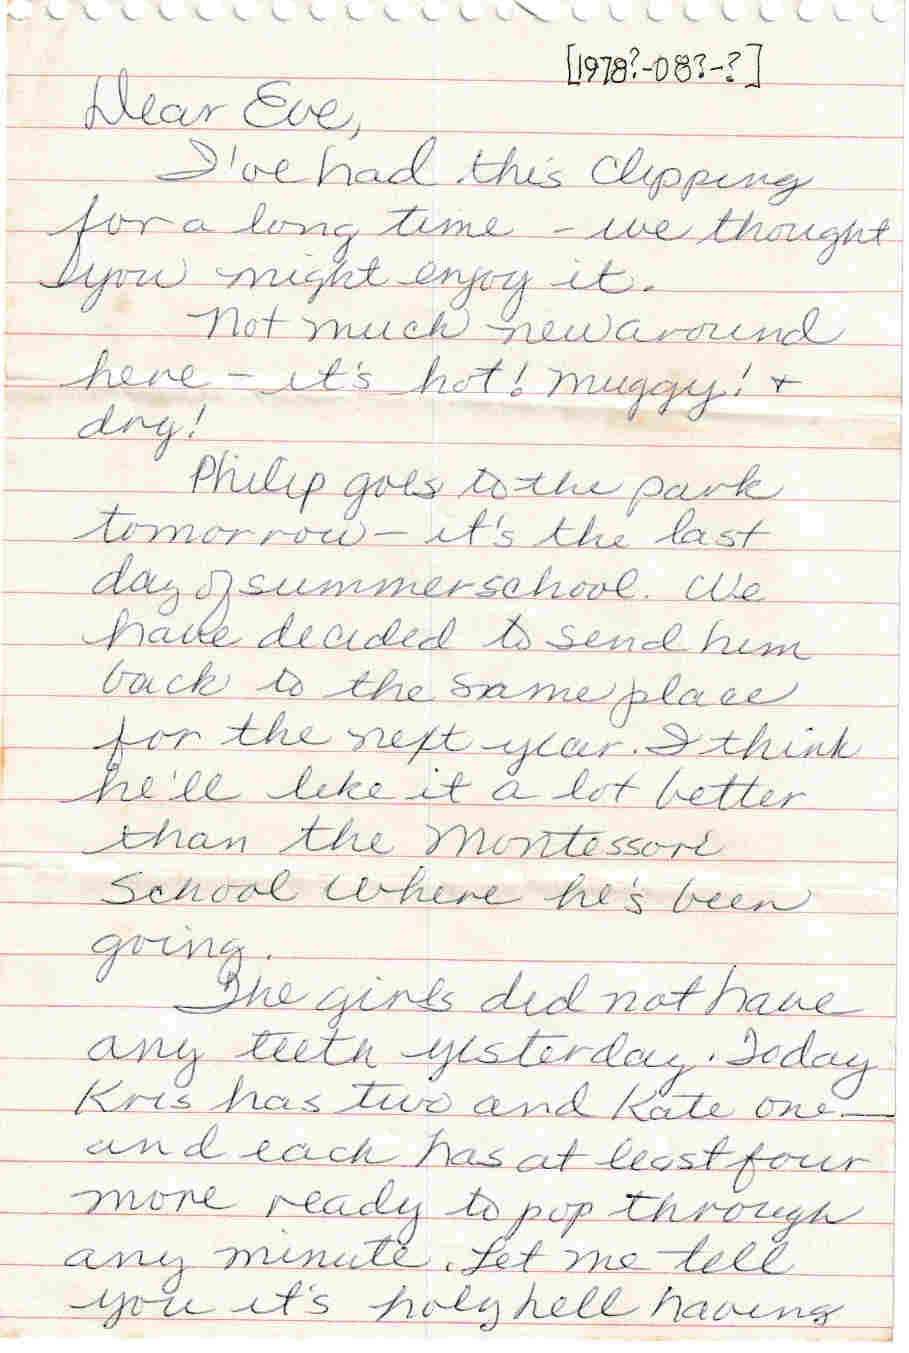 [1978?-08?-?]
Dear Eve,
I've had this clipping
for a long time - we thought
you might enjoy it.
Not much new around
here - it's hot! muggy! +
dry!
Philip goes to the park
tomorrow - it's the last
day of summer school. We
have decided to send him
back to the same place
for the next year. I think
he'll like it a lot better
than the Montessori
School where he's been
going.
The girls did not have
any teeth yesterday. Today
Kris has two and Kate one -
and each has at least four
more ready to pop through
any minute. Let me tell
you it's holy hell having